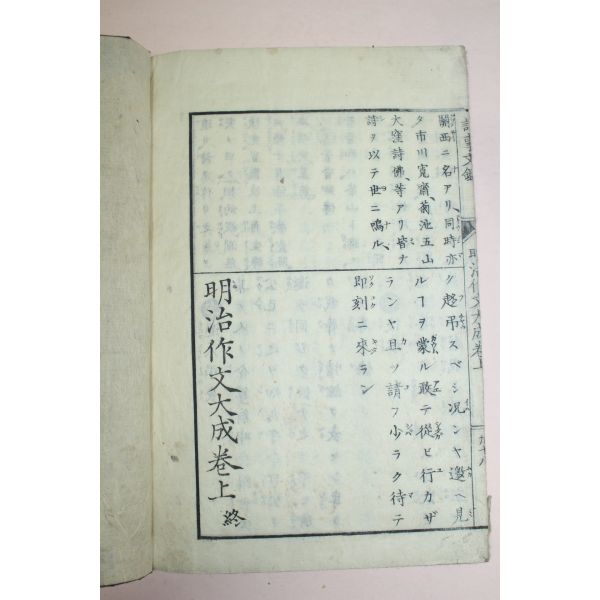 明治作文大成卷上
關西ニ名アリ、同時亦
タ市川寛齋、菊池五山
大窪詩佛、等アリ皆ナ
詩ヲ以テ世ニ鳴ル、
ク趂弔スベシ况ンヤ邀ヘ見
ルヿヲ蒙ル敢テ從ヒ行カザ
ランヤ且ツ請フ少ラク待テ
即刻ニ來ラン
明治作文大成卷上 終